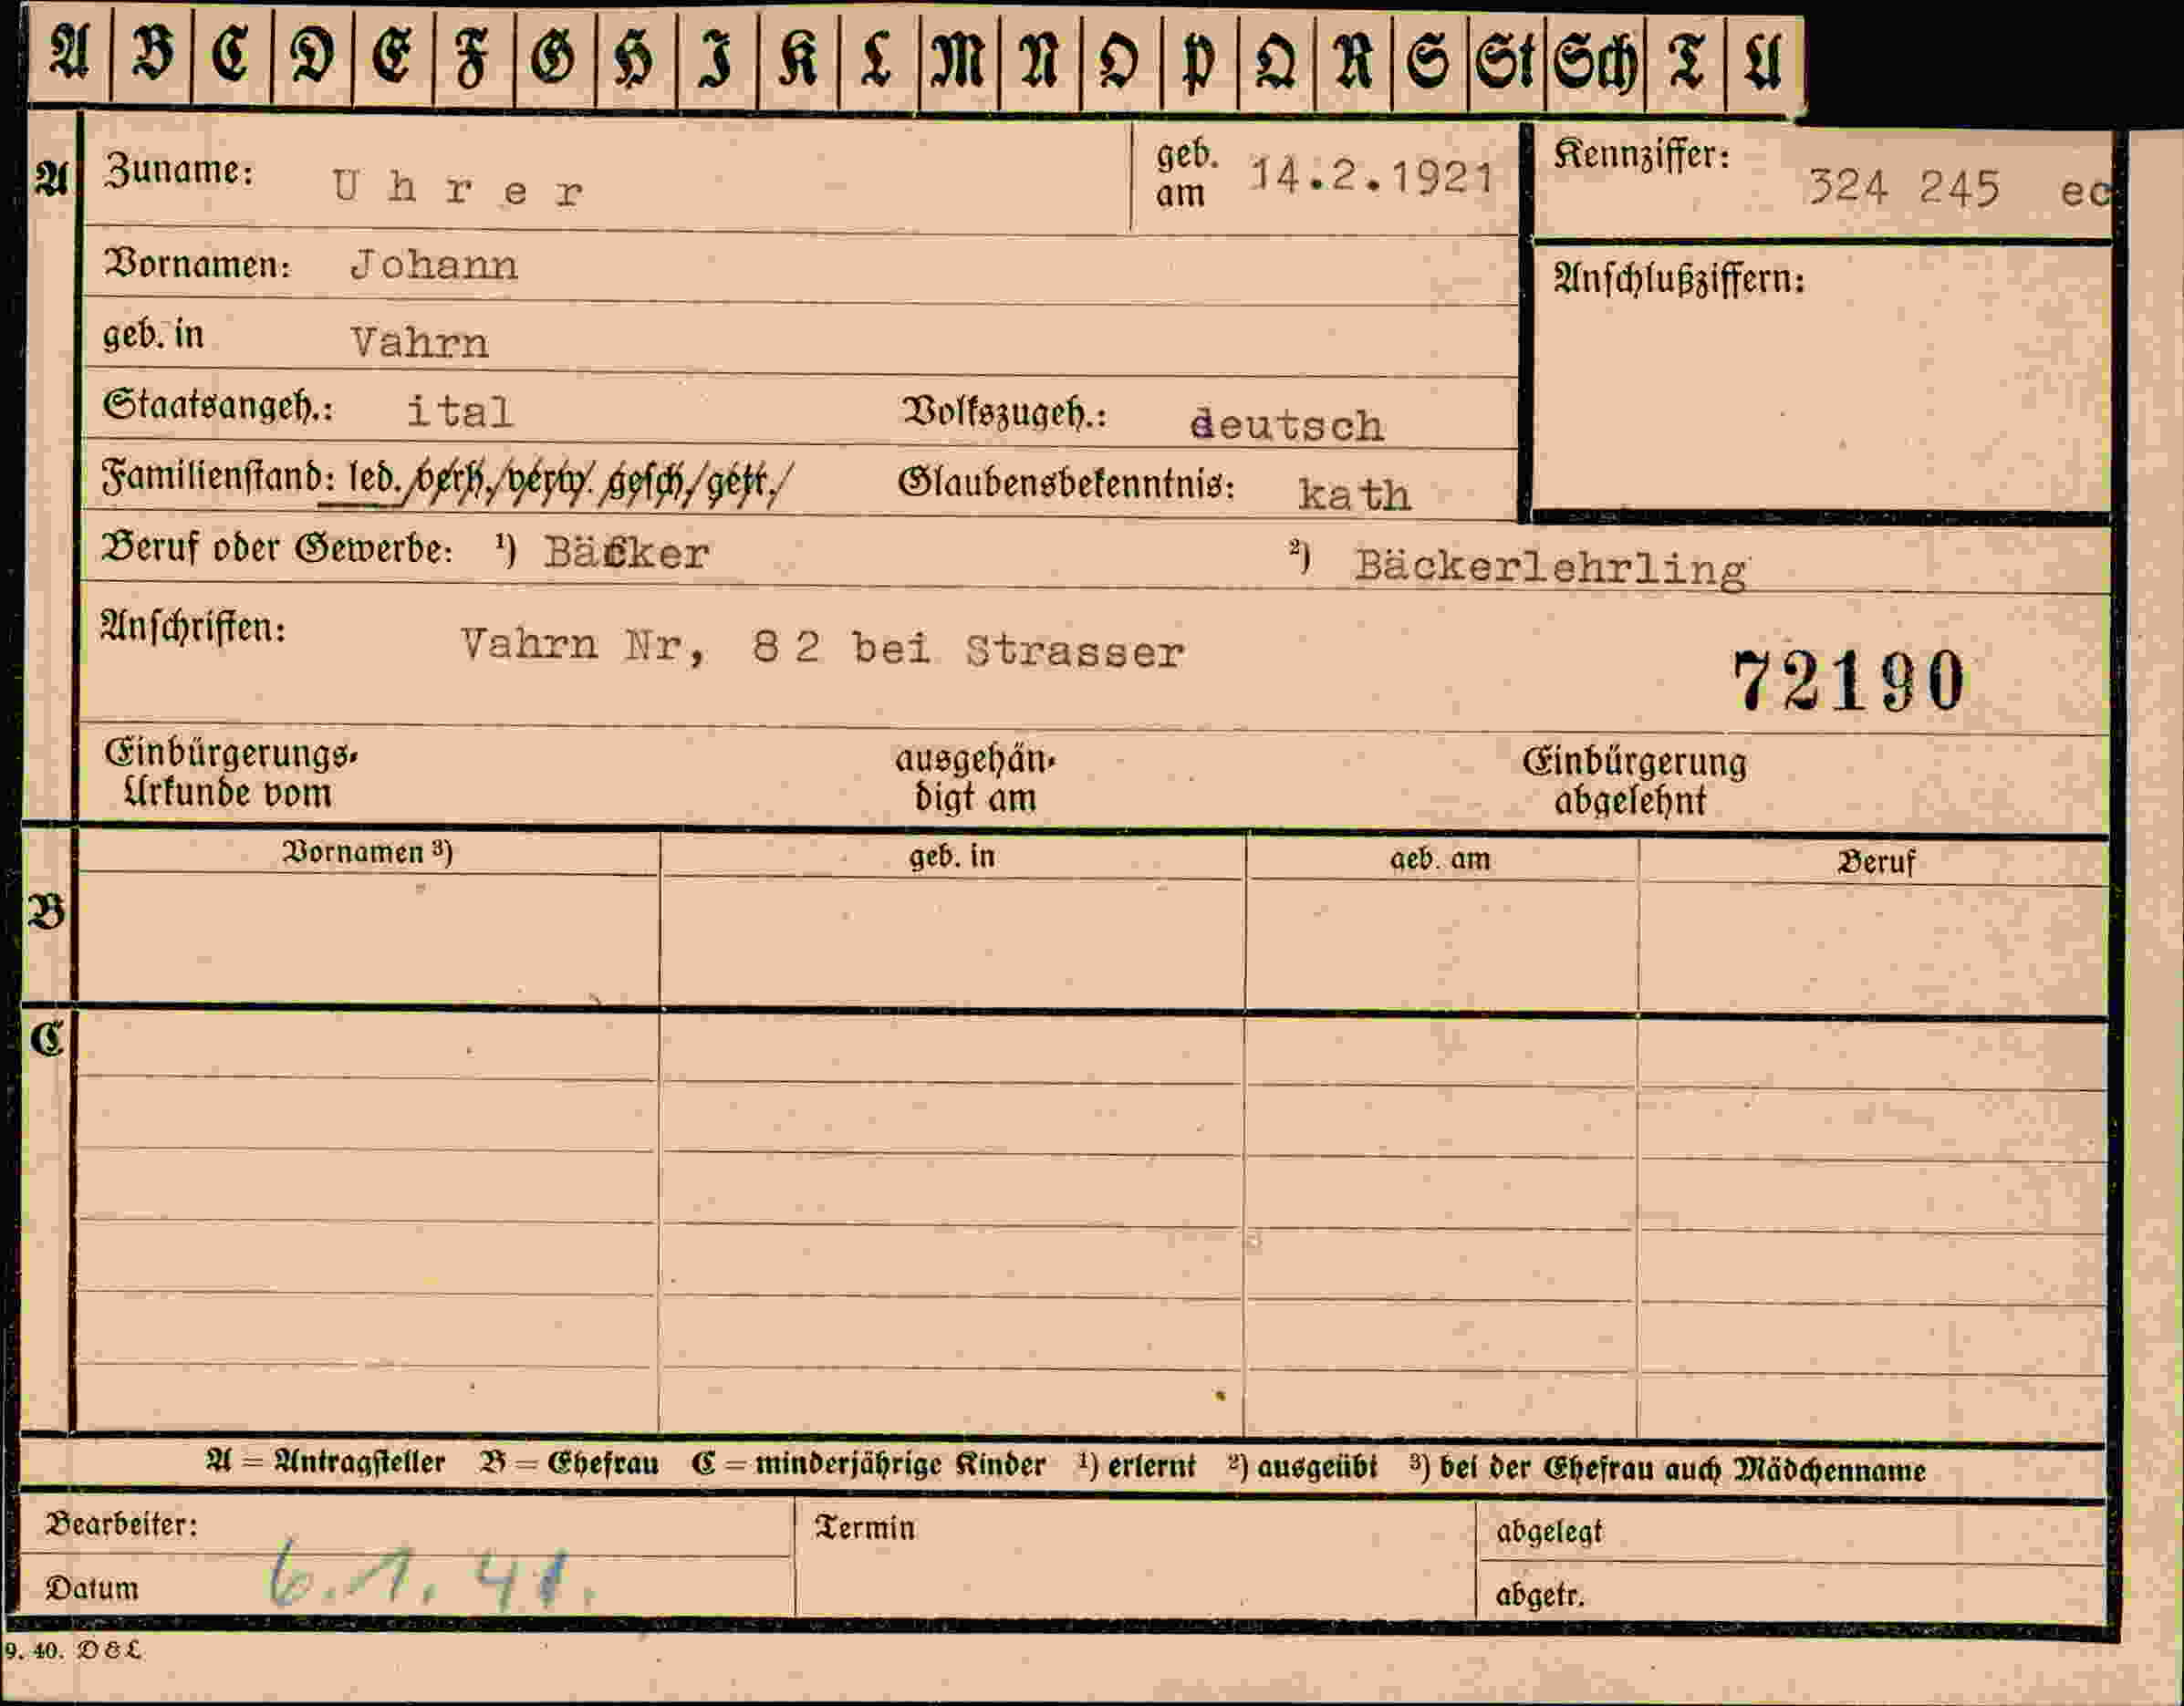 A B C D E F G H I K L M N O P Q R S St Sch T U
A Zuname: Uhrer geb. am 14.2.1921 Kennziffer: 324 245 ec
Vornamen: Johann Anschlußziffern:
geb. in Vahrn
Staatsangeh.: ital Volkszugeh.: deutsch
Familienstand: led. verh. verw. gesch. getr. Glaubensbekenntnis: kath
Beruf oder Gewerbe: ¹) Bäcker ²) Bäckerlehrling
Anschriften: Vahrn Nr, 82 bei Strasser
72190
Einbürgerungs-
Urkunde vom
ausgehän-
digt am
Einbürgerung
abgelehnt
Vornamen ³) geb. in geb. am Beruf
B
C
A = Antragsteller B = Ehefrau C = minderjährige Kinder ¹) erlernt ²) ausgeübt ³) bei der Ehefrau auch Mädchenname
Bearbeiter: Termin abgelegt
Datum 6.1.41. abgetr.
9. 40. D&L